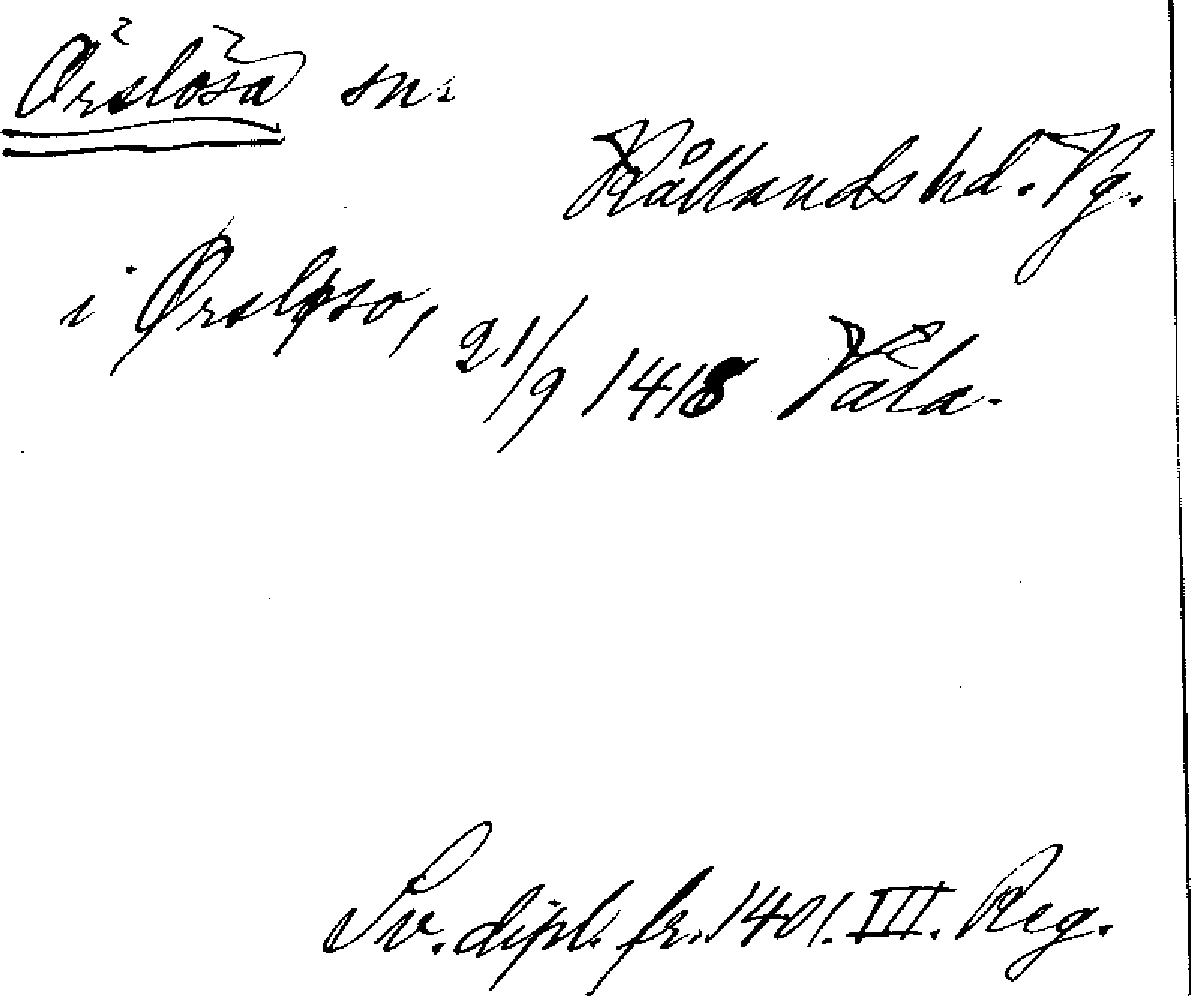 Örslösa sn.
Kållands hd. Vg.
i Ørsløso, 21/9 1418 Våla.
Sv. dipl. fr. 1401. III. Reg.